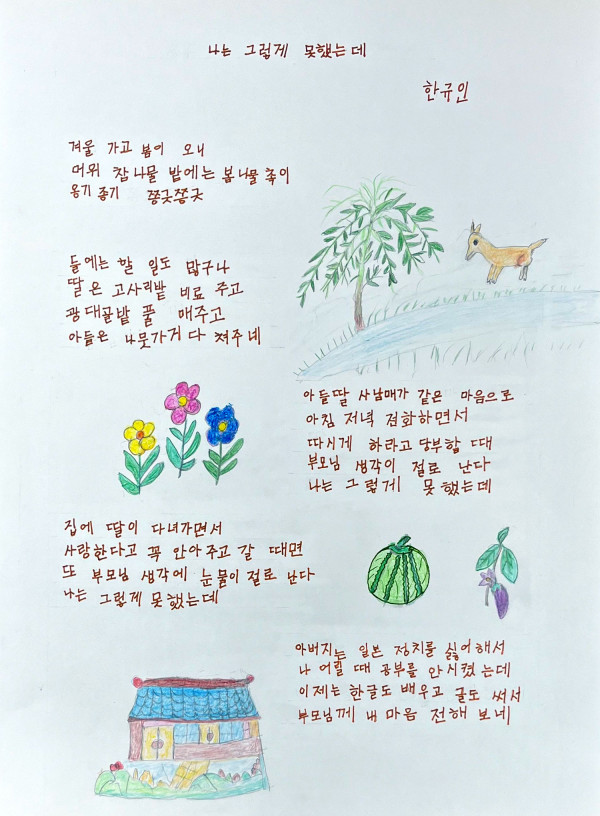 나는 그렇게 못했는데
한규인
겨울 가고 봄이 오니
머위 참나물 밭에는 봄나물 쭉이
옹기 종기 쫑긋쫑긋
들에는 할 일도 많구나
딸은 고사리밭 비료 주고
광대골밭 풀 매주고
아들은 나뭇가지 다 쳐주네
아들딸 사남매가 같은 마음으로
아침 저녁 전화하면서
따시게 하라고 당부할 때
부모님 생각이 절로 난다
나는 그렇게 못했는데
집에 딸이 다녀가면서
사랑한다고 꼭 안아주고 갈 때면
또 부모님 생각에 눈물이 절로 난다
나는 그렇게 못했는데
아버지는 일본 정치를 싫어해서
나 어릴 때 공부를 안시켰는데
이제는 한글도 배우고 글도 써서
부모님께 내 마음 전해 보네